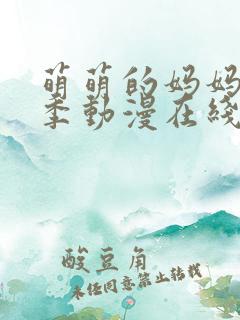 萌萌的妈妈
季動漫在綫
酸豆角
未经同意禁止转载